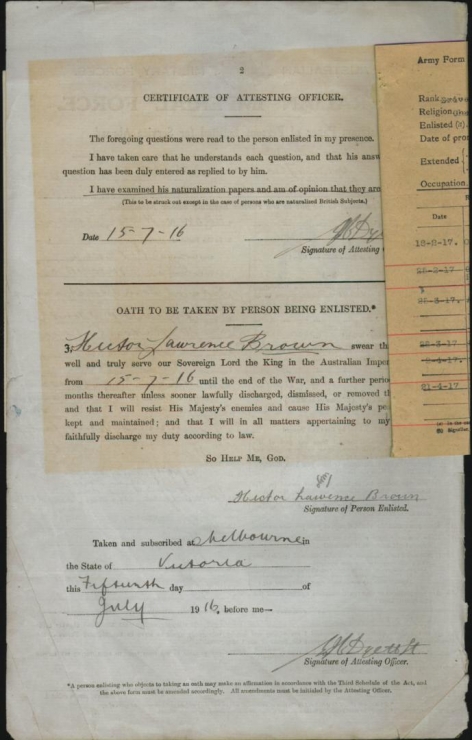 2
CERTIFICATE OF ATTESTING OFFICER.
The foregoing questions were read to the person enlisted in my presence.
I have taken care that he understands each question, and that his answ
question has been duly entered as replied to by him.
I have examined his naturalization papers and am of opinion that they are
(This to be struck out except in the case of persons who are naturalised British Subjects.)
Date 15-7-16
Signature of Attesting
OATH TO BE TAKEN BY PERSON BEING ENLISTED.*
3, Hector Lawrence Brown swear th
well and truly serve our Sovereign Lord the King in the Australian Imper
from 15-7-16 until the end of the War, and a further perio
months thereafter unless sooner lawfully discharged, dismissed, or removed t
and that I will resist His Majesty's enemies and cause His Majesty's pe
kept and maintained; and that I will in all matters appertaining to my
faithfully discharge my duty according to law.
SO HELP ME, GOD.
Hector Lawrence Brown
Signature of Person Enlisted.
Taken and subscribed at Melbourne in
the State of Victoria
this Fifteenth day of
July 1916, before me—
Signature of Attesting Officer.
*A person enlisting who objects to taking an oath may make an affirmation in accordance with the Third Schedule of the Act, and
the above form must be amended accordingly. All amendments must be initialed by the Attesting Officer.
Army Form
Rank
Religion
Enlisted (a)
Date of pro
Extended
Occupation
Date
12-2-17.
21-4-17